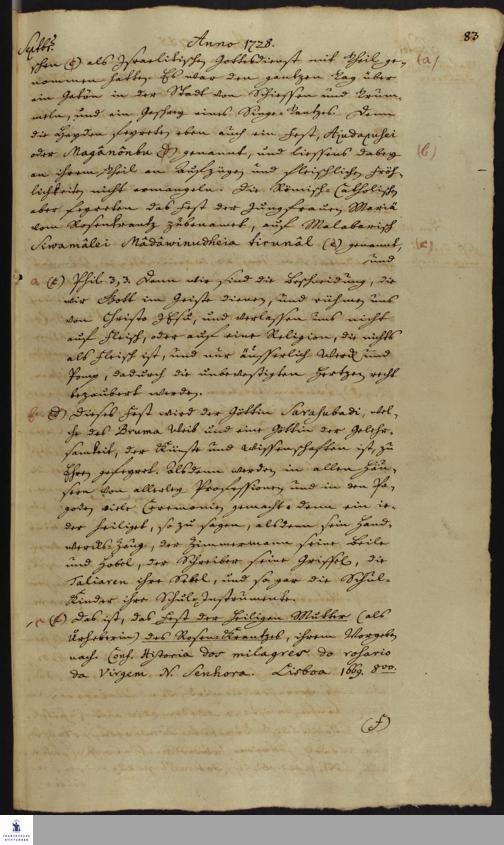 Septbr.
Anno 1728.
83
schen (c) als Israelitischen Gottesdienst mit theil ge-
(a)
nommen hatten. Es war den gantzen Tag über
ein Getön in der Stadt von Schiessen und Trum-
meln, und ein Gesang eines Sing-Tantzes. Denn
die Heyden feyreten eben auch ein Fest, Ajudapuhei
oder Magânônbu (d) genannt, und liessens dabey
(b)
an ihrem Theil an Aufzügen und fleischlichen Fröh-
lichkeiten nicht ermangeln. Die Römisch-Catholischen
aber feyreten das Fest der Jungfrauen Mariä
vom Rosenkrantz zubenamet, auf Malabarisch
Siwamâlei Mâdâwinudheia tirunâl (e) genannt,
(c)
und
a (c) Phil. 3,3. Denn wir sind die Beschneidung, die
wir Gott im Geiste dienen, und rühmen uns
von Christo JEsu, und verlassen uns nicht
auf Fleisch, oder auf eine Religion, die nichts
als Fleisch ist, und nur äusserlich Werck und
Pomp, dadurch die unbevestigten Hertzen recht
bezaubert werden.
b (d) Dieses Fest wird der Göttin Sarasubadi, wel-
che des Bruma Weib und eine Göttin der Gelehr-
samkeit, der Künste und Wissenschaften ist, zu
Ehren gefeyret. Alsdenn werden in allen Häu-
sern von allerley Professionen und in den Pa-
goden viele Ceremonien gemacht: denn ein ie-
der heiliget, so zu sagen, alsdenn sein Hand-
wercks-Zeug, der Zimmermann seine Beile
und Hobel, der Schreiber seine Griffel, die
Taliaren ihre Sebel, und so gar die Schul-
Kinder ihre Schul-Instrumente.
c (e) Das ist, das Fest der Heiligen Mutter (als
Urheberin) des Rosen-Krantzes, ihrem Vorgeben
nach. Conf. Historia dos milagres do rosario
da Virgem N. Senhora. Lisboa 1669. 8vo.
(f)
FRANCKESCHE
STIFTUNGEN